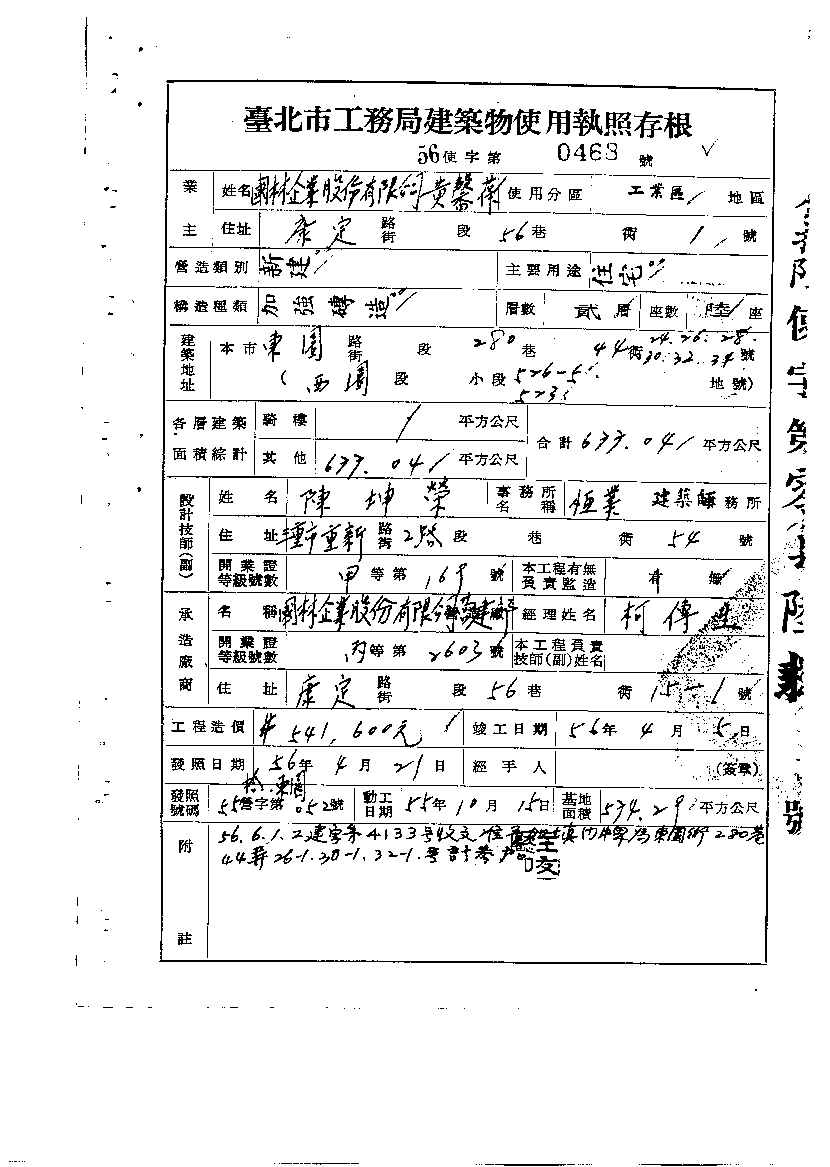 臺北市工務局建築物使用執照存根
56使字第 0468 號
業主 姓名 國林企業股份有限公司黃馨衛 使用分區 工業區 地區
住址 康定 路街 段 56巷 衖 1 號
營造類別 新建 主要用途 住宅
構造種類 加強磚造 層數 貳層 座數 陸座
建築地址 本市 東園 路街 段 280巷 44衖 24.26.28. 30.32.34號
(西園段 小段 526-5 地號)
各層建築面積綜計 騎樓 / 平方公尺 合計 633.04 平方公尺
其他 633.04 平方公尺
設計技師(副) 姓名 陳坤榮 事務所名稱 恒業 建築師務所
住址 三重市重新路街 2 段 巷 衖 54 號
開業證等級號數 甲等第 169 號 本工程有無負責監造 有 無
承造廠商 名稱 國林企業股份有限公司 經理姓名 柯傳生
開業證等級號數 丙等第 2603號 本工程負責技師(副)姓名
住址 康定 路街 段 56巷 衖 15-1號
工程造價 541,600元 竣工日期 56年 4月 5日
發照日期 56年 4月 21日 經手人 (簽章)
發照號碼 55營字第 052號 動工日期 55年 10月 15日 基地面積 534.29 平方公尺
附註 56.6.1.
44弄26-1.30-1.32-1.號